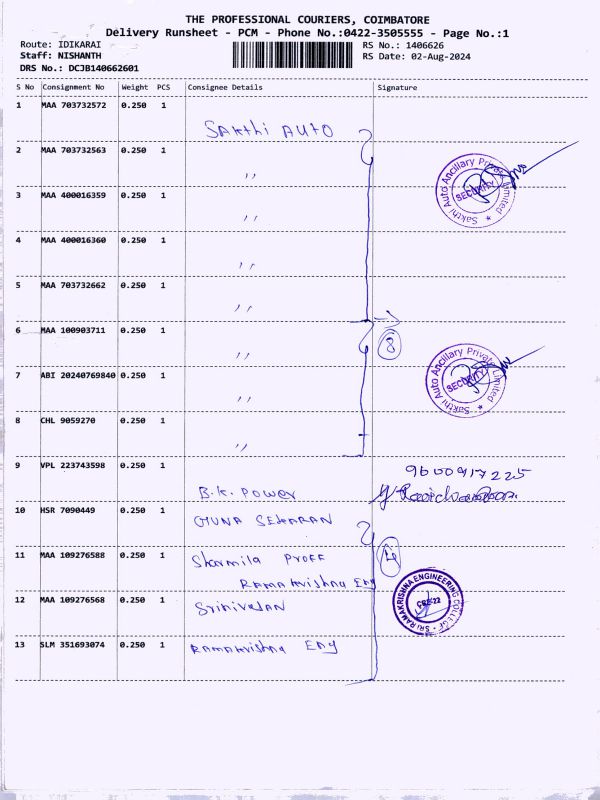 THE PROFESSIONAL COURIERS, COIMBATORE
Delivery Runsheet - PCM - Phone No.:0422-3505555 - Page No.:1
Route: IDIKARAI RS No.: 1406626
Staff: NISHANTH RS Date: 02-Aug-2024
DRS No.: DCJB140662601
S No Consignment No Weight PCS Consignee Details Signature
1 MAA 703732572 0.250 1
Sakthi Auto
2 MAA 703732563 0.250 1
,,
Sakthi Auto Ancillary Private Limited ★ SECURITY
3 MAA 400016359 0.250 1
,,
4 MAA 400016360 0.250 1
,,
5 MAA 703732662 0.250 1
,,
6 MAA 100903711 0.250 1
8
,,
7 ABI 20240769840 0.250 1
Sakthi Auto Ancillary Private Limited ★ SECURITY
,,
8 CHL 9059270 0.250 1
,,
9 VPL 223743598 0.250 1
9600917225
B.K. Power
10 HSR 7090449 0.250 1
GUNA SEKARAN
11 MAA 109276588 0.250 1
4
Sharmila Proff
Ramakrishna Eng
12 MAA 109276568 0.250 1
Srinivasan
SRI RAMAKRISHNA ENGINEERING COLLEGE
CBE-22
13 SLM 351693074 0.250 1
Ramakrishna Eng